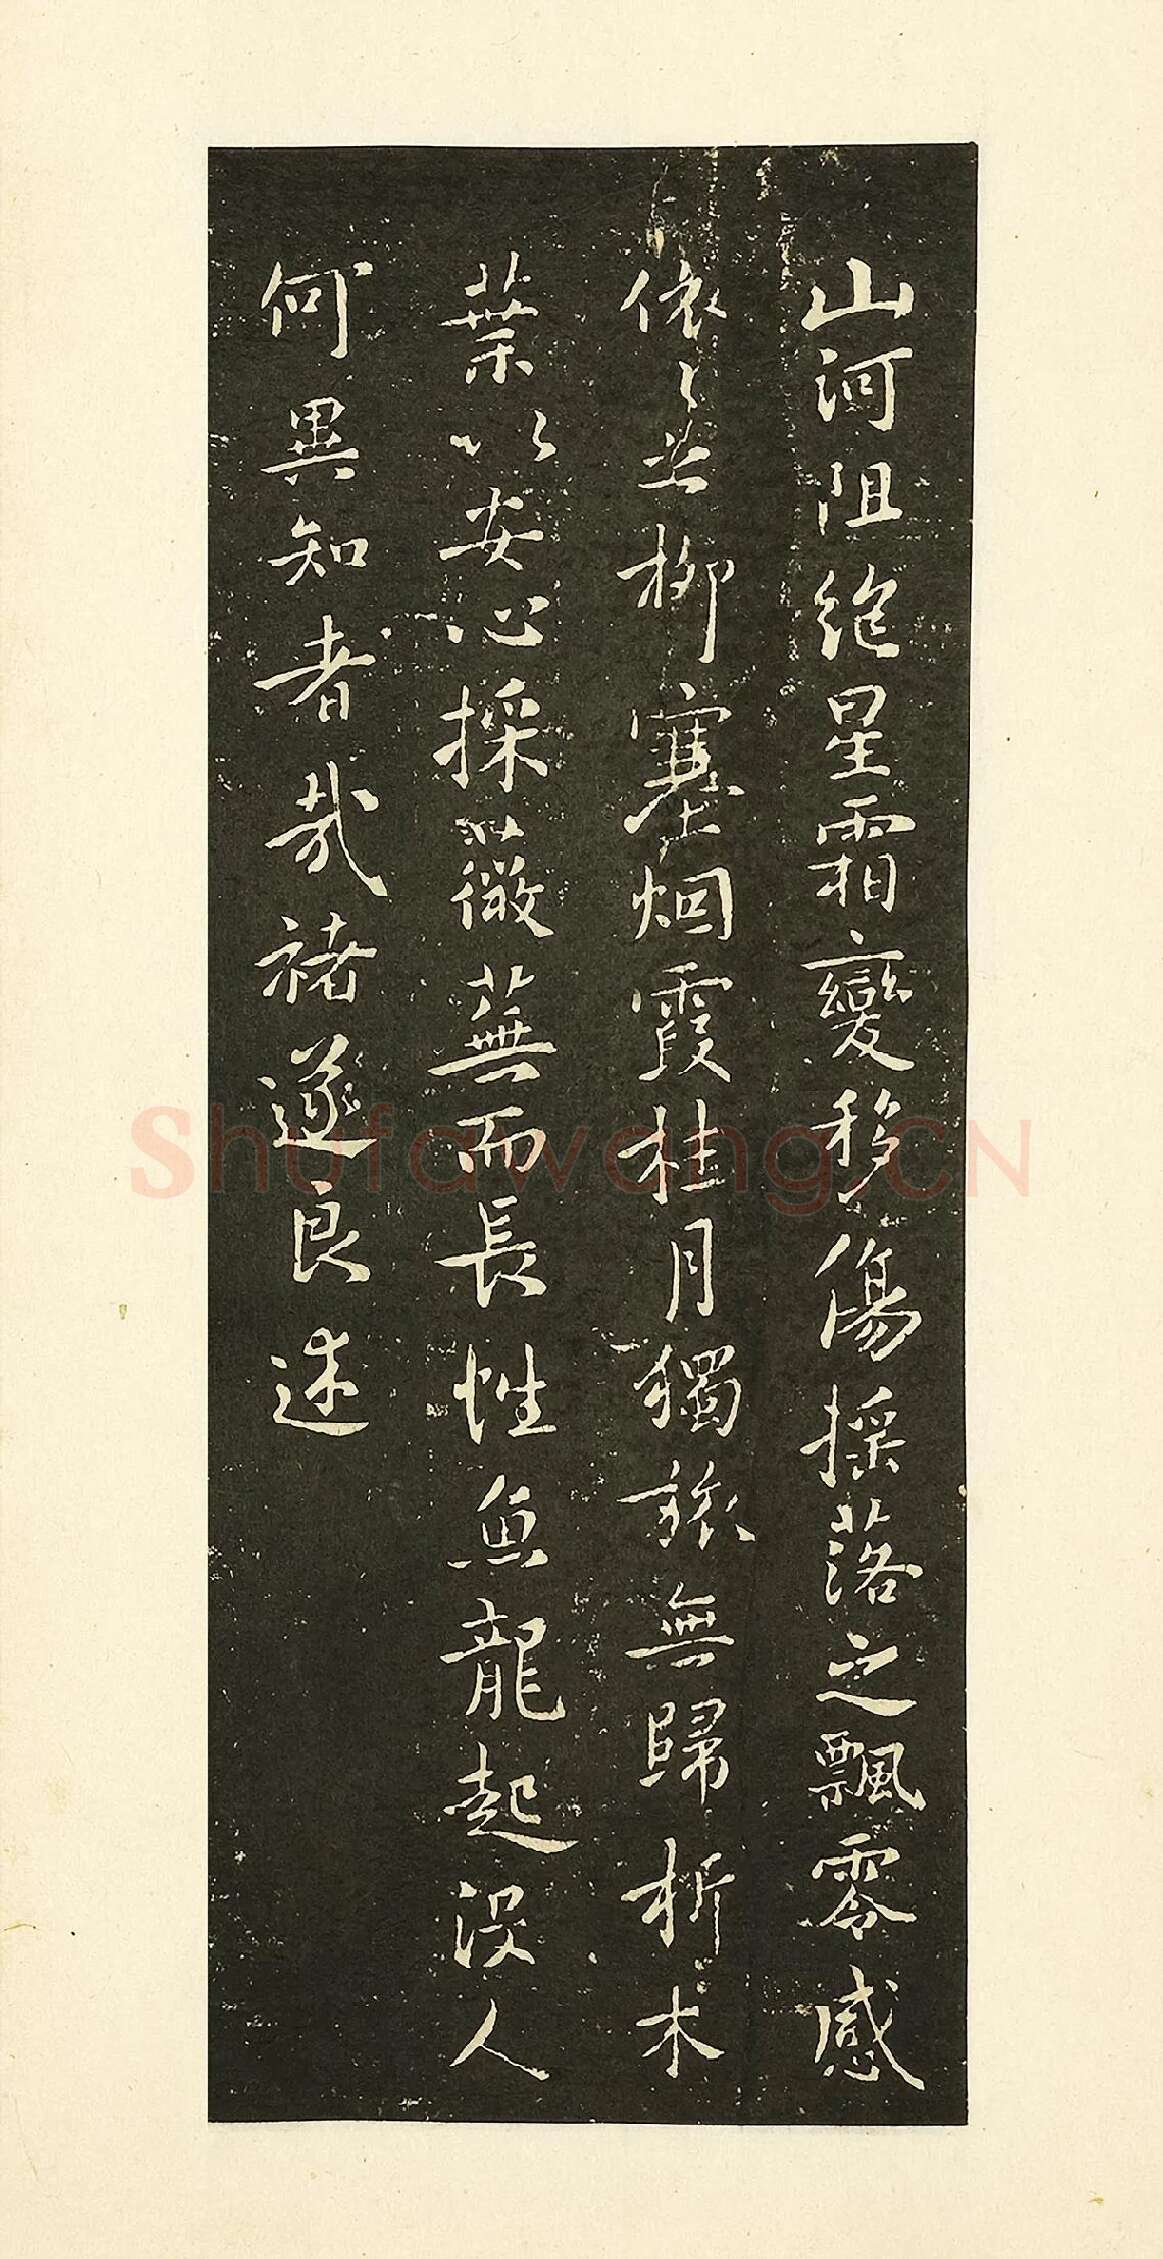 山河阻絕星霜變移傷搖落之飄零感
依々之柳塞烟霞桂月獨旅無歸折木
葉以安心採薇蕪而長性魚龍起沒人
何異知者哉褚遂良述
Shufawang.CN